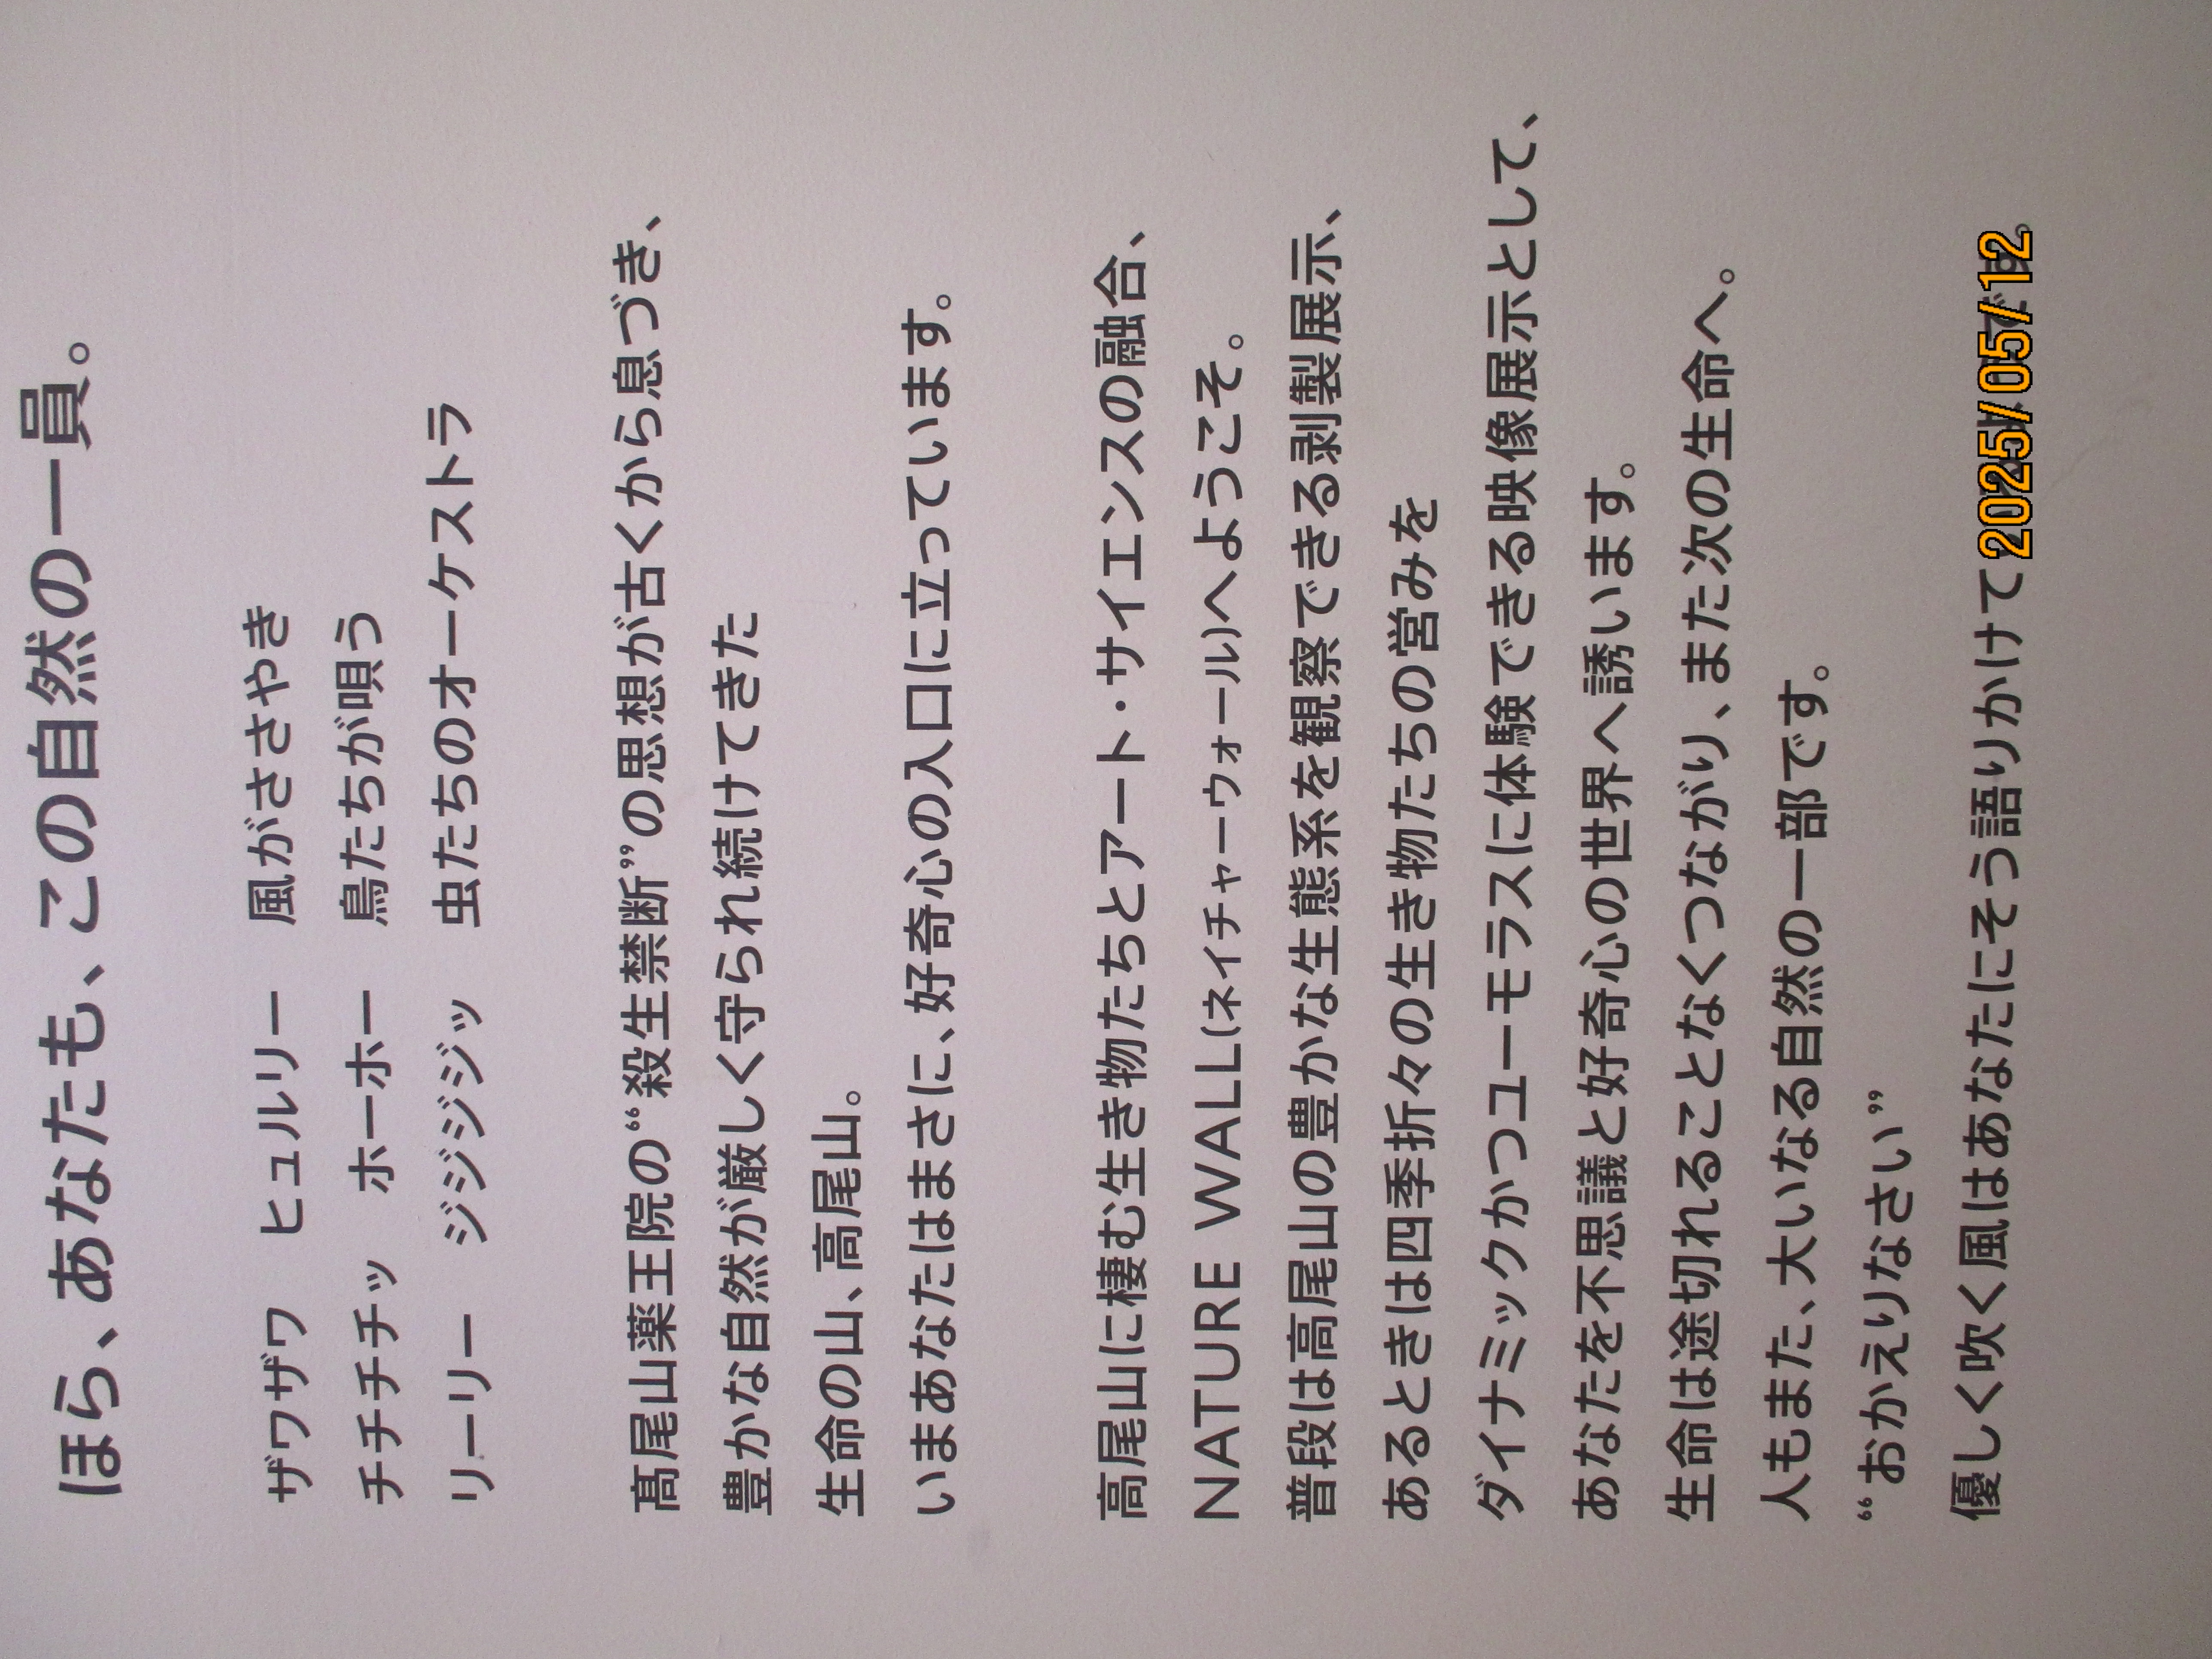 ほら、あなたも、この自然の一員。
ザワザワ　ヒュルリー　風がささやき
チチチチッ　ホーホー　鳥たちが唄う
リーリー　ジジジジッ　虫たちのオーケストラ
髙尾山薬王院の“殺生禁断”の思想が古くから息づき、
豊かな自然が厳しく守られ続けてきた
生命の山、高尾山。
いまあなたはまさに、好奇心の入口に立っています。
高尾山に棲む生き物たちとアート・サイエンスの融合、
NATURE WALL(ネイチャーウォール)へようこそ。
普段は高尾山の豊かな生態系を観察できる剥製展示、
あるときは四季折々の生き物たちの営みを
ダイナミックかつユーモラスに体験できる映像展示として、
あなたを不思議と好奇心の世界へ誘います。
生命は途切れることなくつながり、また次の生命へ。
人もまた、大いなる自然の一部です。
“おかえりなさい”
優しく吹く風はあなたにそう語りかけて
2025/05/12